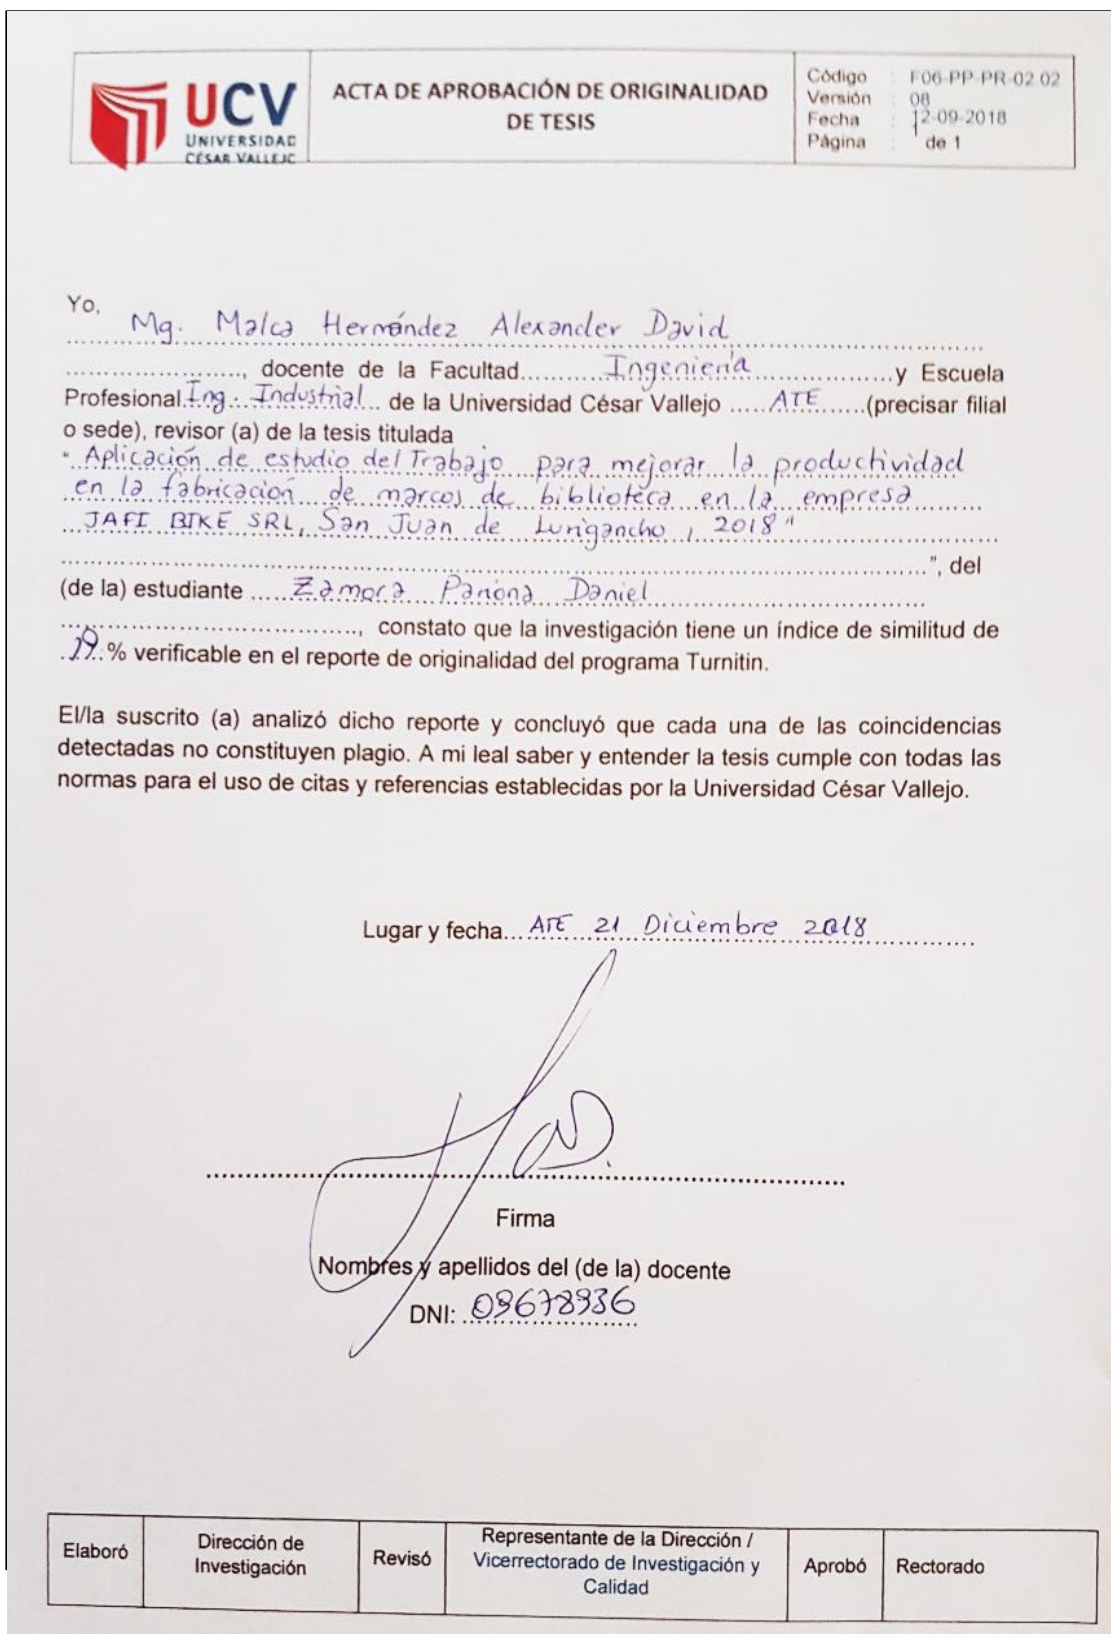 UCV
UNIVERSIDAD
CÉSAR VALLEJO
ACTA DE APROBACIÓN DE ORIGINALIDAD
DE TESIS
Código : F06-PP-PR-02.02
Versión : 08
Fecha : 12-09-2018
Página : 1 de 1
Yo,
Mg. Malca Hernández Alexander David
......................., docente de la Facultad.......... Ingeniería ..................y Escuela
Profesional Ing. Industrial... de la Universidad César Vallejo ..... ATE ......(precisar filial
o sede), revisor (a) de la tesis titulada
" Aplicación de estudio del Trabajo para mejorar la productividad
en la fabricación de marcos de biblioteca en la empresa
JAFI BIKE SRL, San Juan de Lurigancho, 2018"
", del
(de la) estudiante ..... Zamora Pariona Daniel
..................................., constato que la investigación tiene un índice de similitud de
% verificable en el reporte de originalidad del programa Turnitin.
El/la suscrito (a) analizó dicho reporte y concluyó que cada una de las coincidencias
detectadas no constituyen plagio. A mi leal saber y entender la tesis cumple con todas las
normas para el uso de citas y referencias establecidas por la Universidad César Vallejo.
Lugar y fecha... ATE 21 Diciembre 2018
Firma
Nombres y apellidos del (de la) docente
DNI: 09678936
Elaboró
Dirección de
Investigación
Revisó
Representante de la Dirección /
Vicerrectorado de Investigación y
Calidad
Aprobó
Rectorado